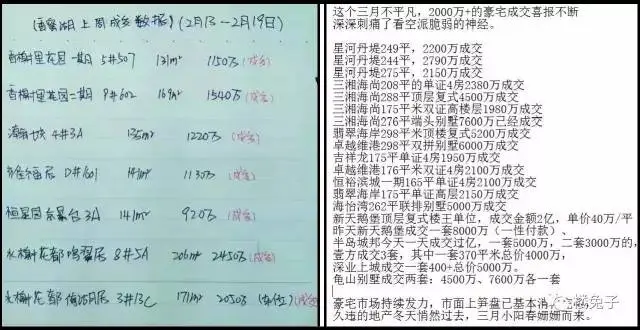 (香蜜湖上周成交数据)(2月13-2月19日)
香梅里花园一期 5#507 131m² 1150万(成交)
香梅里花园二期 9#602 169m² 1540万(成交)
4#3A 135m² 1220万(成交)
D#1601 1130万(成交)
恒星园 3A 141m² 920万(成交)
水榭花都 8#5A 206m² 2450万(成交)
水榭花都 3#13C 171m² 2050万(成交)
这个三月不平凡，2000万+的豪宅成交喜报不断
深深刺痛了看空派脆弱的神经。
星河丹堤249平，2200万成交
星河丹堤244平，2790万成交
星河丹堤275平，2150万成交
三湘海尚208平的单证4房2380万成交
三湘海尚288平顶层复式4500万成交
三湘海尚175平米双证高楼层1980万成交
三湘海尚276平端头别墅7600万已经成交
翡翠海岸298平米顶楼复式5200万成交
卓越维港298平双拼别墅6000万成交
吉祥龙175平单证4房1950万成交
卓越维港176平米双证4房2100万成交
恒裕滨城一期165平单证4房2100万成交
翡翠海岸175平单证高层2150万成交
海怡湾262平联排别墅5000万成交
新天鹅堡顶层复式楼王单位，成交金额2亿，单价40万/平
昨天新天鹅堡成交一套8000万（一性付款）、
半岛城邦今天一天成交过亿，一套5000万，二套3000万的，
壹方成交3套，其中一套370平米总价4000万，
深业上城成交一套400+总价5000万。
龟山别墅成交两套：4500万、7600万各一套
豪宅市场持续发力，市面上笋盘已基本消
久违的地产冬天悄然过去，三月小阳春姗姗而来。
楼兔子